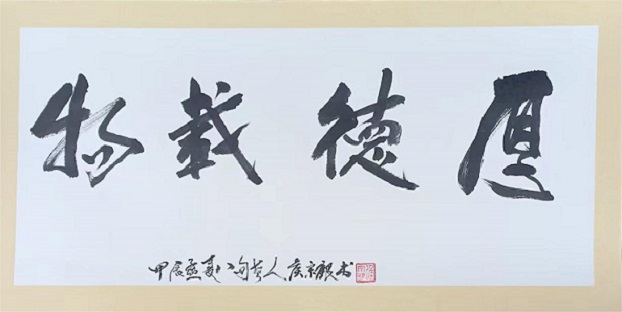 厚德載物
甲辰孟夏八旬老人侯书